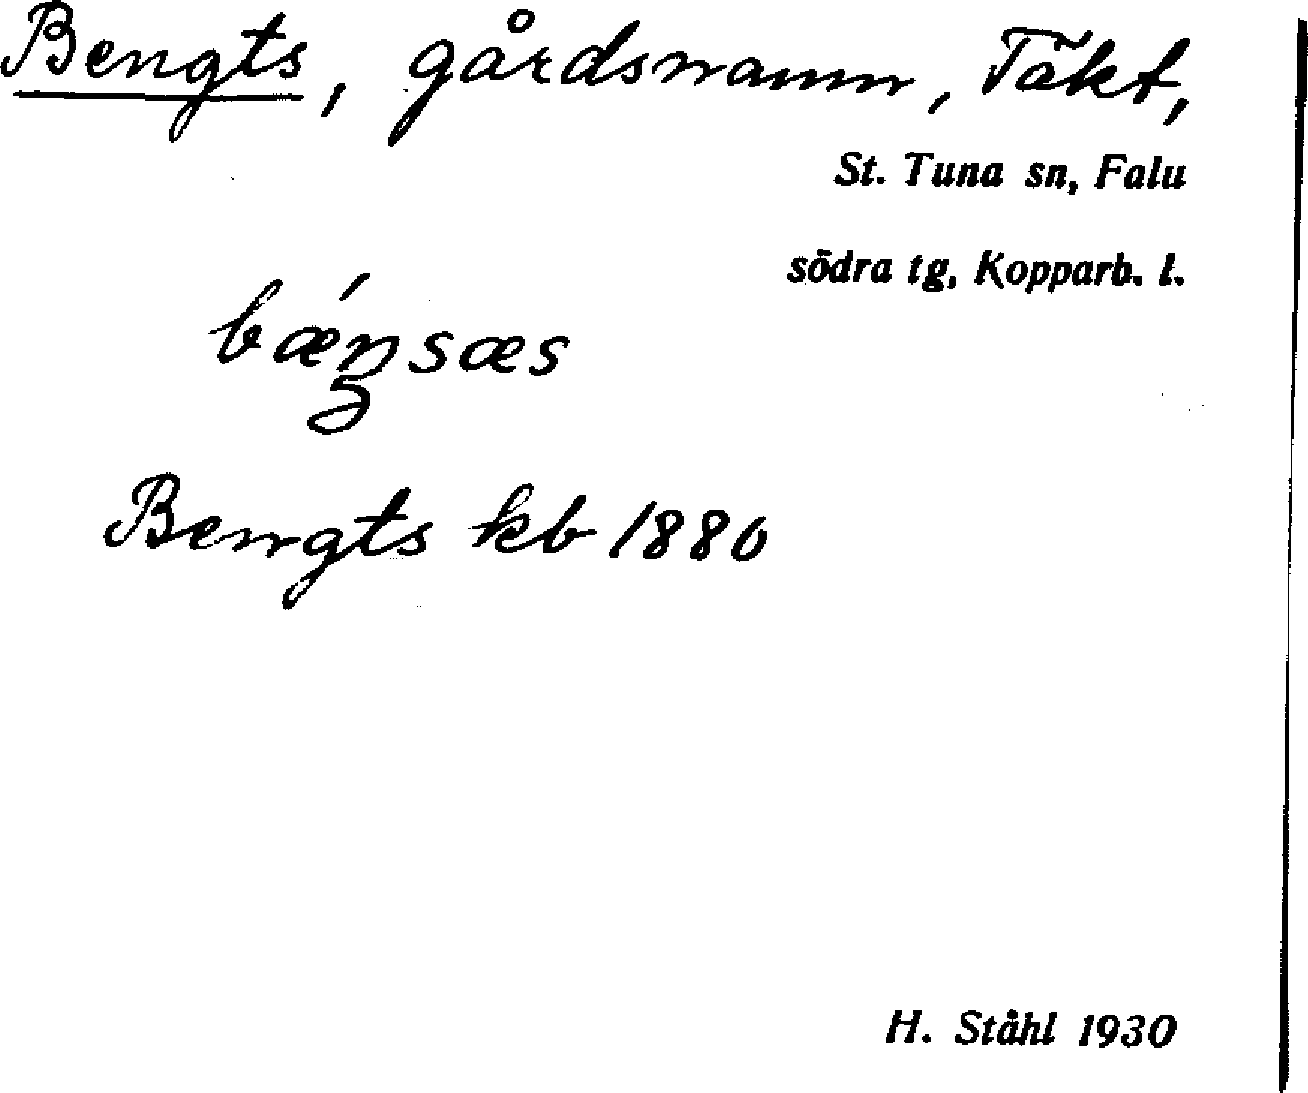 Bengts, gårdsnamn, Täkt,
St. Tuna sn, Falu
södra tg, Kopparb. l.
Bengts kb 1880
H. Ståhl 1930